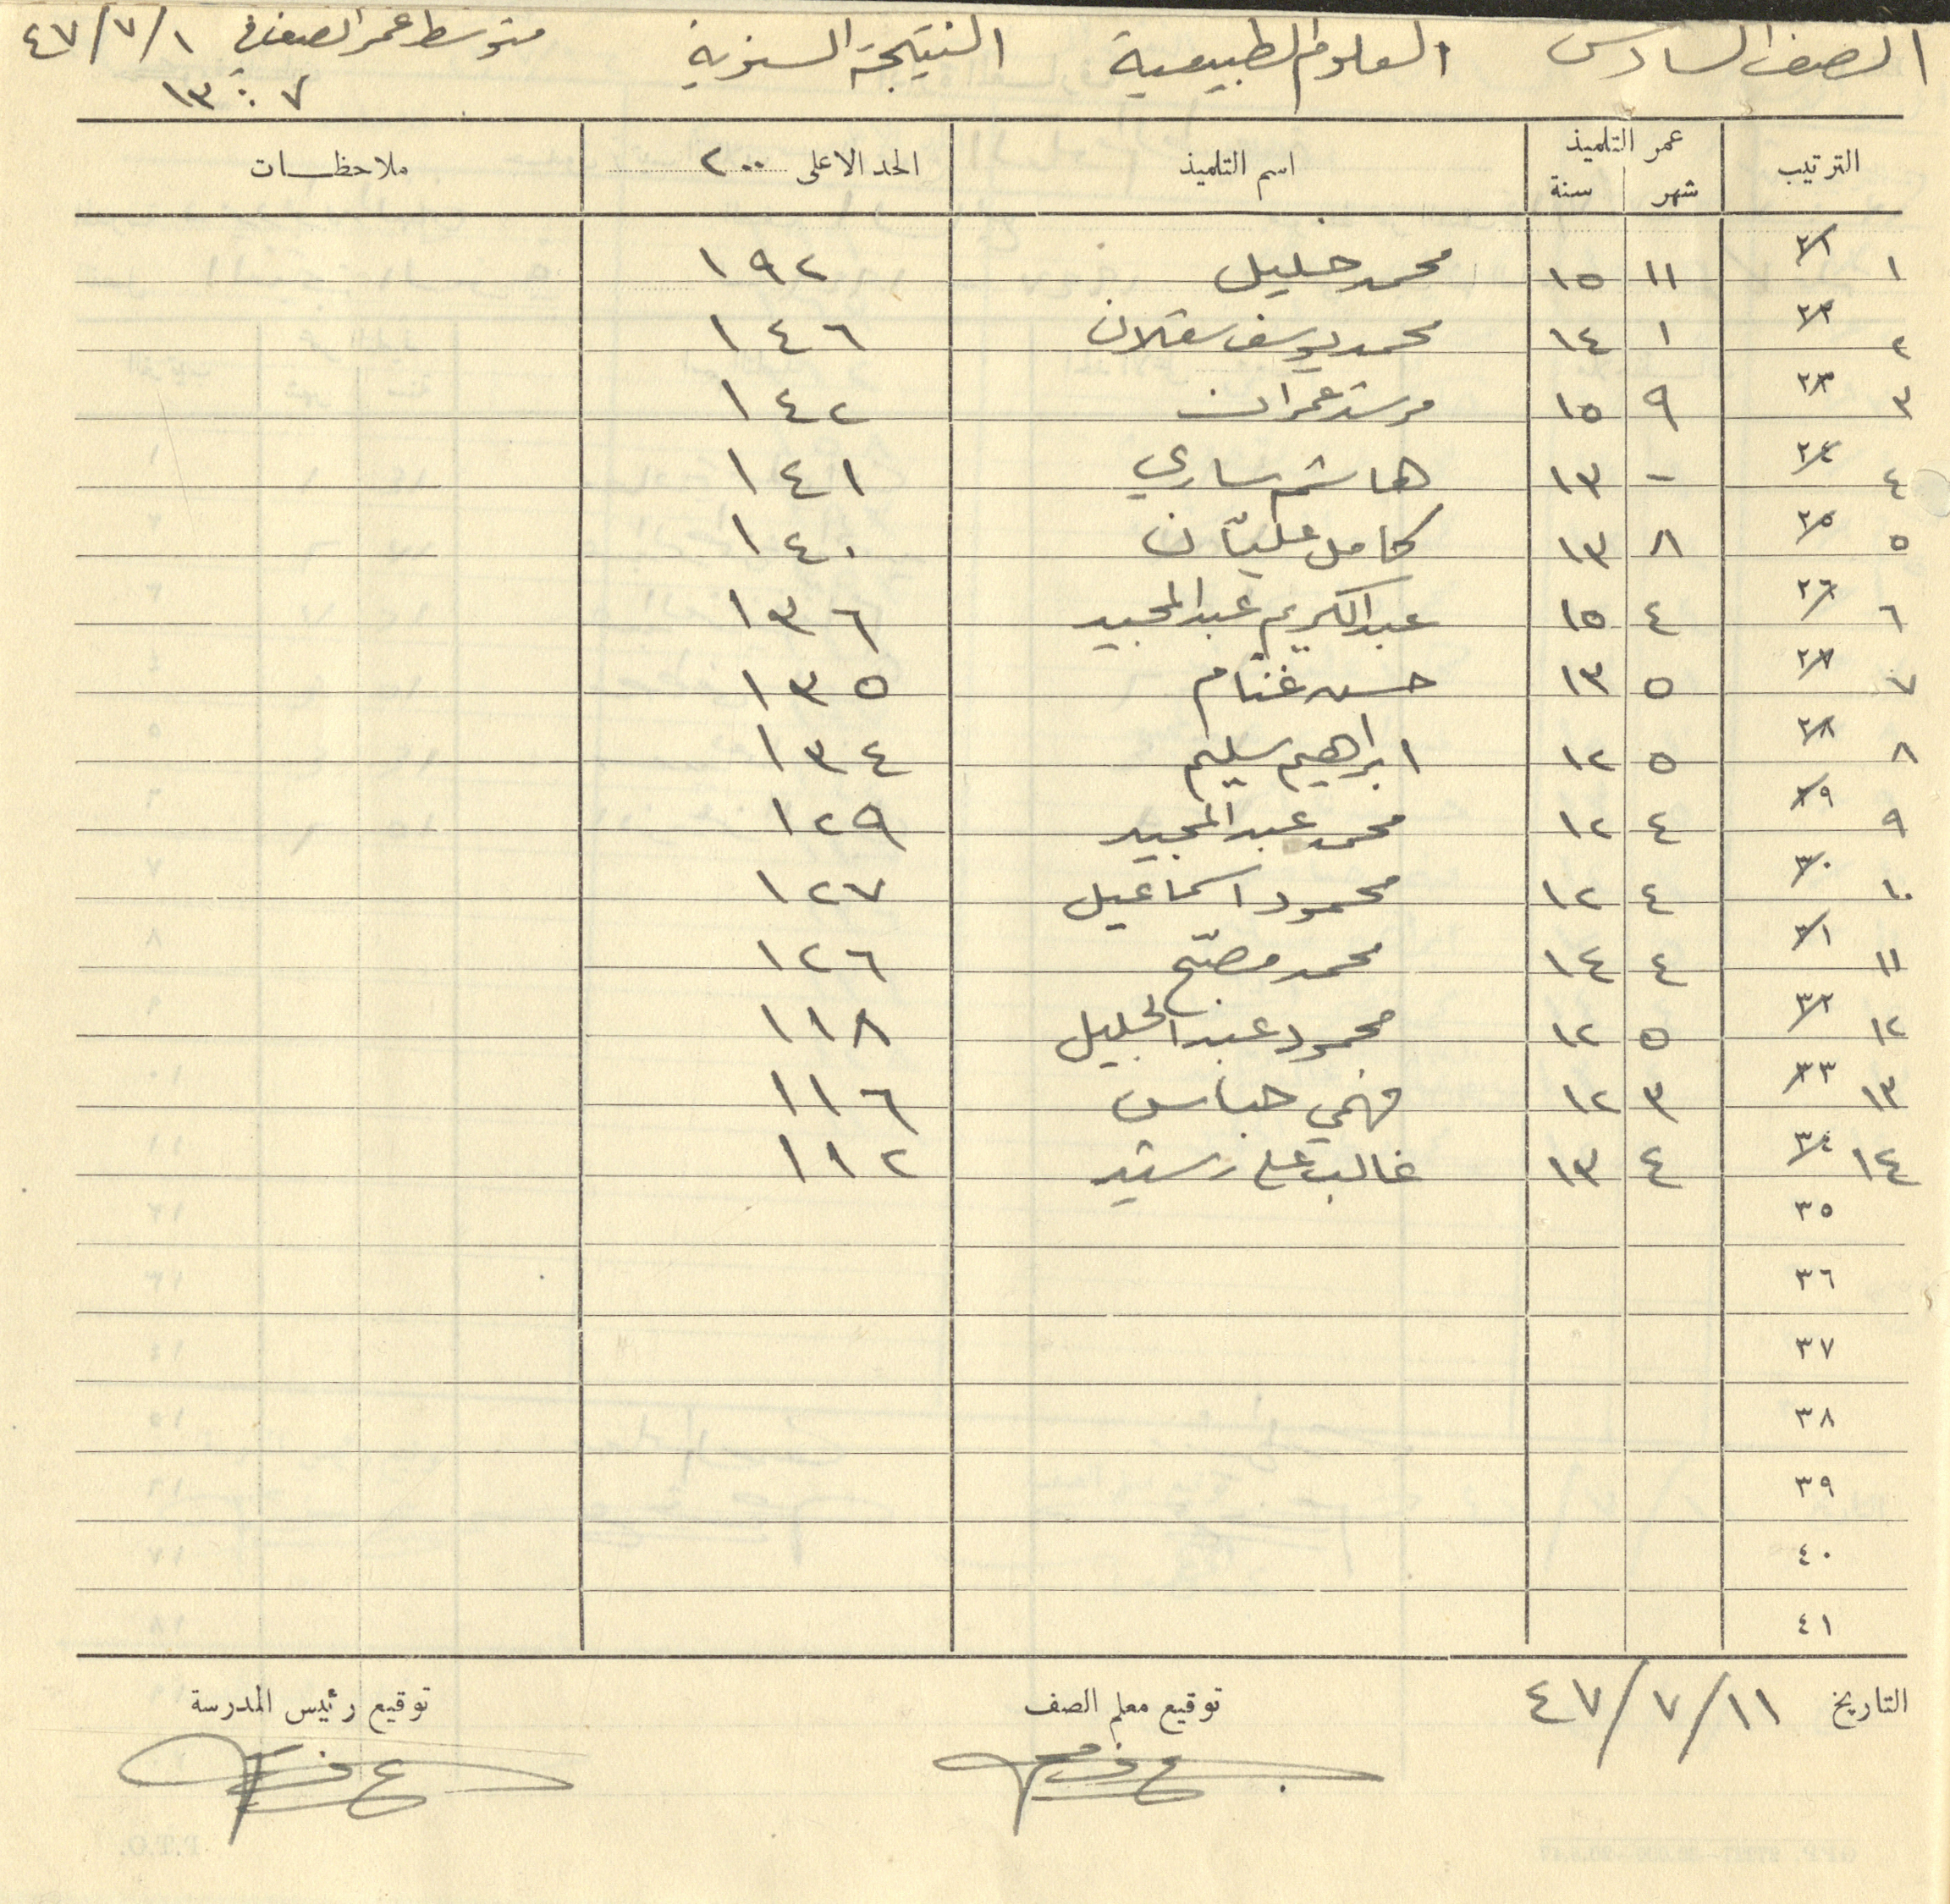 الصف السادس العلوم الطبيعية النتيجة السنوية متوسط عمر الصف في ١/٧/٤٧
٧ : ١٣
الترتيب عمر التلميذ اسم التلميذ الحد الاعلى ٢٠٠ ملاحظات
شهر سنة
١ ٢١ ١١ ١٥ محمد خليل ١٩٢
٢ ٢٢ ١ ١٤ محمد يوسف سقلان ١٤٦
٣ ٢٣ ٩ ١٥ مرشد عمران ١٤٢
٤ ٢٤ - ١٣ هاشم ساري ١٤١
٥ ٢٥ ٨ ١٣ كامل عليّان ١٤٠
٦ ٢٦ ٤ ١٥ عبد الكريم عبد المجيد ١٣٦
٧ ٢٧ ٥ ١٣ حسن غنّام ١٣٥
٨ ٢٨ ٥ ١٢ ابراهيم سليم ١٣٤
٩ ٢٩ ٤ ١٢ محمد عبد المجيد ١٢٩
١٠ ٣٠ ٤ ١٢ محمود اسماعيل ١٢٧
١١ ٣١ ٤ ١٤ محمد مصبّح ١٢٦
١٢ ٣٢ ٥ ١٢ محمود عبد الجليل ١١٨
١٣ ٣٣ ٣ ١٢ فهمي حباس ١١٦
١٤ ٣٤ ٤ ١٣ غالب علي رشيد ١١٢
٣٥
٣٦
٣٧
٣٨
٣٩
٤٠
٤١
التاريخ ١١/٧/٤٧ توقيع معلم الصف توقيع رئيس المدرسة